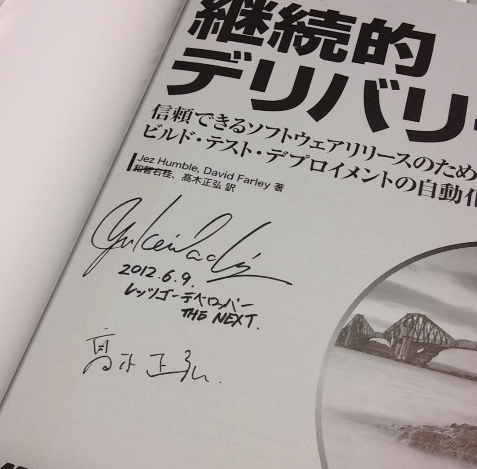 継続的
デリバリー
信頼できるソフトウェアリリースのため
ビルド・テスト・デプロイメントの自動化
Jez Humble, David Farley 著
和智右桂、髙木正弘 訳
2012.6.9.
レッツゴーデベロッパー
THE NEXT.
髙木正弘